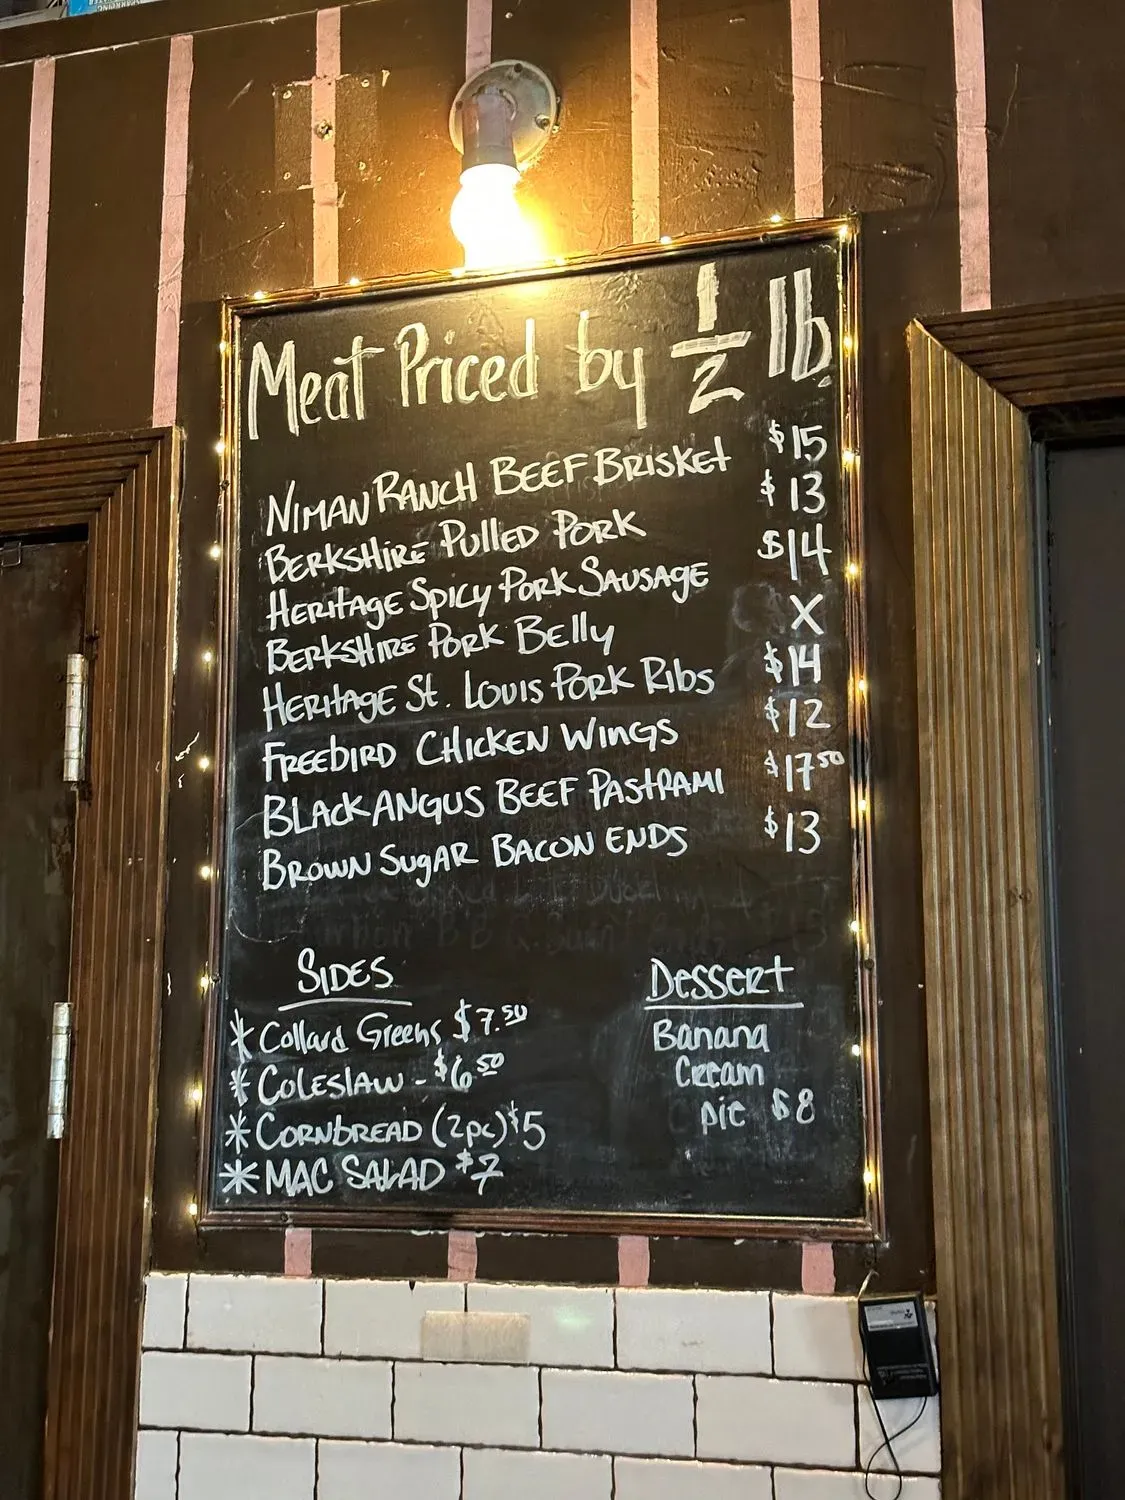 Meat Priced by 1/2 lb.
NIMAN RANCH BEEF BRISKET $15
BERKSHIRE PULLED PORK $13
HERITAGE SPICY PORK SAUSAGE $14
BERKSHIRE PORK BELLY X
HERITAGE St. LOUIS PORK RIBS $14
FREEBIRD CHICKEN WINGS $12
BLACK ANGUS BEEF PASTRAMI $17 50
BROWN SUGAR BACON ENDS $13
SIDES
* Collard Greens $7.50
* COLESLAW - $6 50
* CORNBREAD (2pc) $5
* MAC SALAD $7
Dessert
Banana
Cream
pie $8